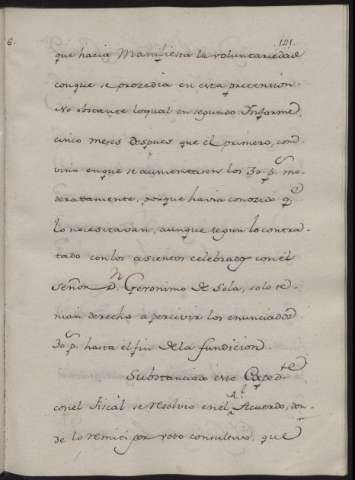 6.
121.
que hacia manifiesta la voluntariedad
conque se prozedia en esta pretension.
No obstante loqual en segundo Informe,
cinco meses despues que el primero, con-
vino enque se aumentasen los 30 p.s mo-
deratamente, porque havia conozido q.e
lo necesitavan, aunque segun lo contra-
tado con los asientos celebrados con el
Señor D.n Geronimo de Sola, solo te-
nian derecho a percivir los enunciados
30 p.s hasta el fin de la fundicion.
Substanciado este Exped.te
con el Fiscal se resolvio en el R.l Acuerdo, don-
de lo remiti por voto consultivo, que